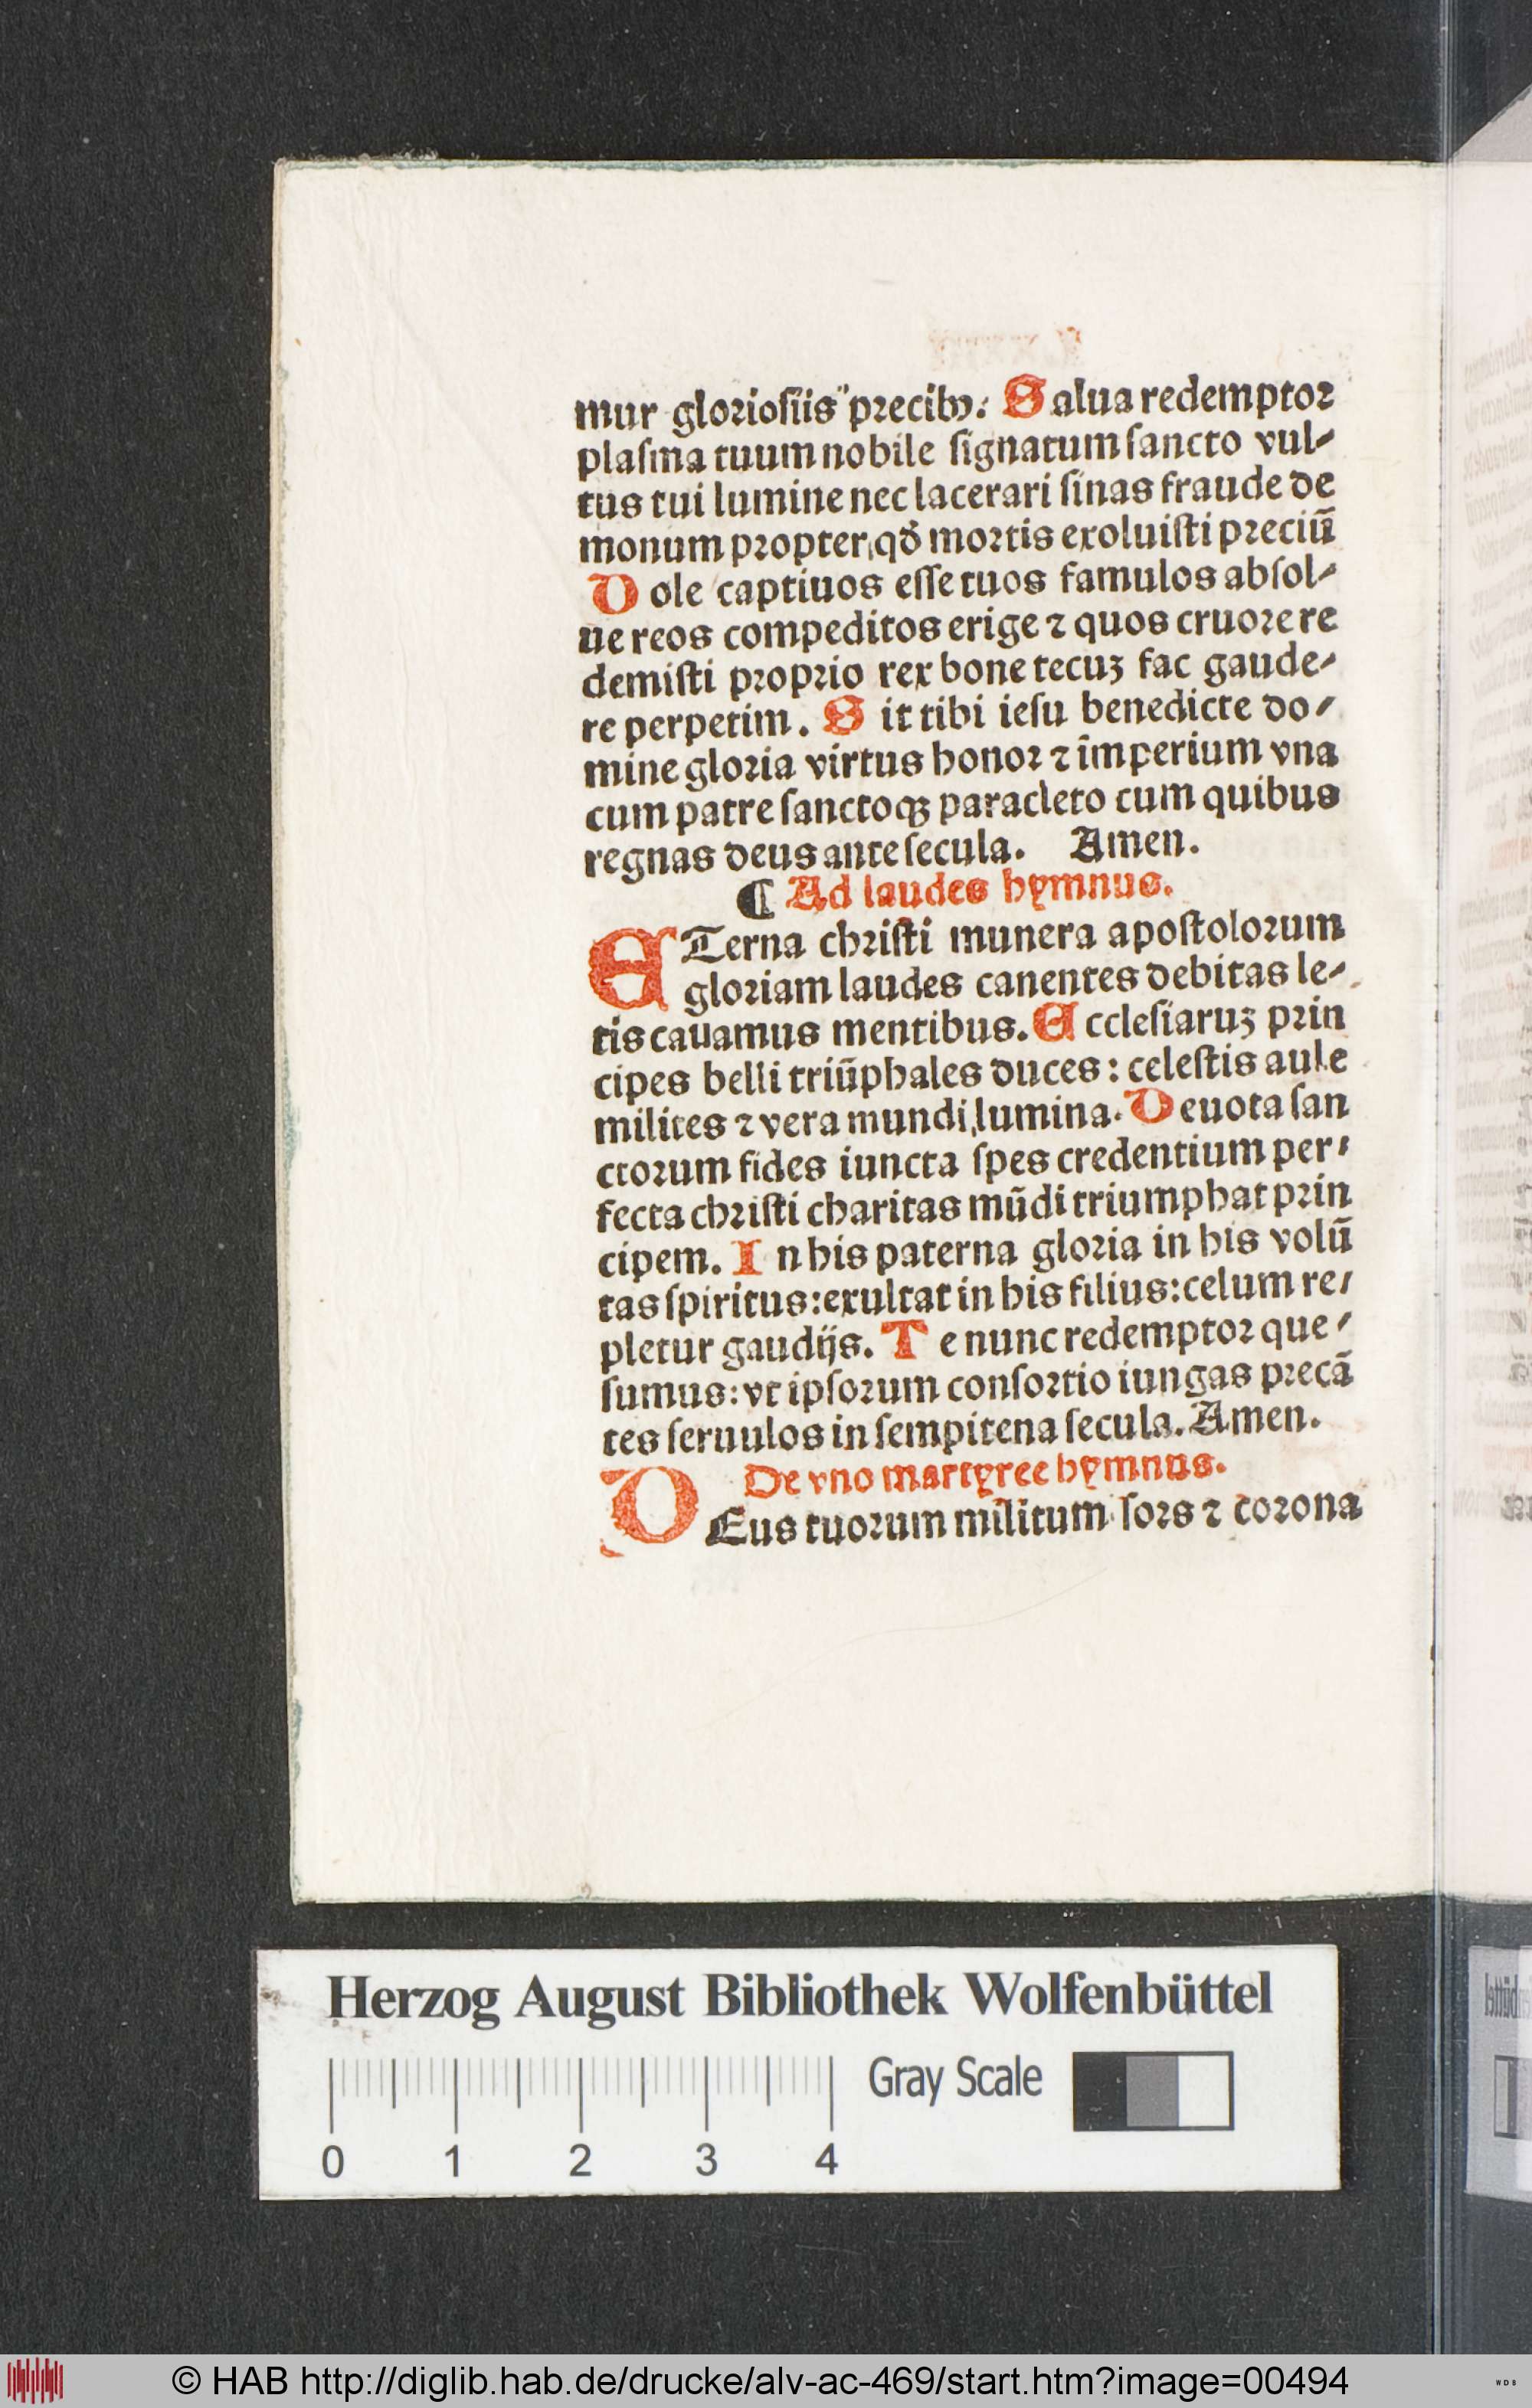 mur gloriosiis precibꝫ: Salua redemptor
plasma tuum nobile signatum sancto vul⸗
tus tui lumine nec lacerari sinas fraude de
monum propter qđ mortis exoluisti preciū
Uole captiuos esse tuos famulos absol⸗
ue reos compeditos erige ⁊ quos cruore re
demisti proprio rex bone tecuꝫ fac gaude⸗
re perpetim. Sit tibi iesu benedicte do⸗
mine gloria virtus honor ⁊ imperium vna
cum patre sanctoqꝫ paracleto cum quibus
regnas deus ante secula. Amen.
¶ Ad laudes hymnus.
ETerna christi munera apostolorum
gloriam laudes canentes debitas le⸗
tis cauamus mentibus. Ecclesiaruꝫ prin
cipes belli triūphales duces: celestis aule
milites ⁊ vera mundi lumina. Deuota san
ctorum fides iuncta spes credentium per⸗
fecta christi charitas mūdi triumphat prin
cipem. In his paterna gloria in his volū
tas spiritus: exultat in his filius: celum re⸗
pletur gaudijs. Te nunc redemptor que⸗
sumus: vt ipsorum consortio iungas precā
tes seruulos in sempitena secula. Amen.
De vno martyree hymnus.
DEus tuorum militum sors ⁊ corona
Herzog August Bibliothek Wolfenbüttel
Gray Scale
0 1 2 3 4
© HAB http://diglib.hab.de/drucke/alv-ac-469/start.htm?image=00494